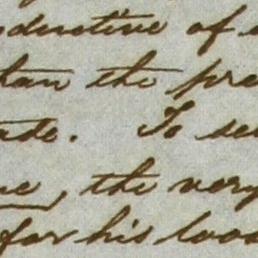 ductive of
than the pre
ade. To se
me, the very
for his loos